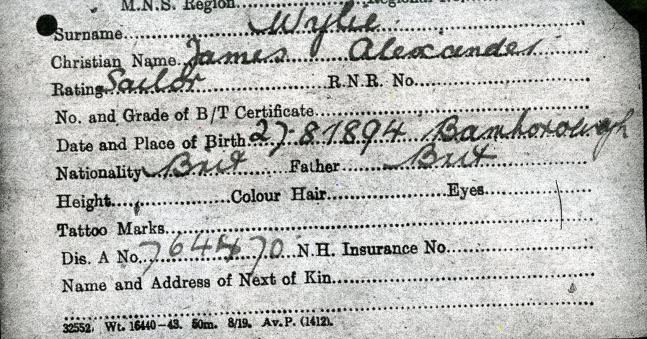 M.N.S. Region
Surname Wylie
Christian Name James Alexander
Rating Sailor R.N.R. No.
No. and Grade of B/T Certificate
Date and Place of Birth 27-8 1894 Bamborough
Nationality Brit Father Brit
Height Colour Hair Eyes
Tattoo Marks
Dis. A No. 764470 N.H. Insurance No.
Name and Address of Next of Kin
32552. Wt. 16440-43. 50m. 8/19. Av.P. (1412).